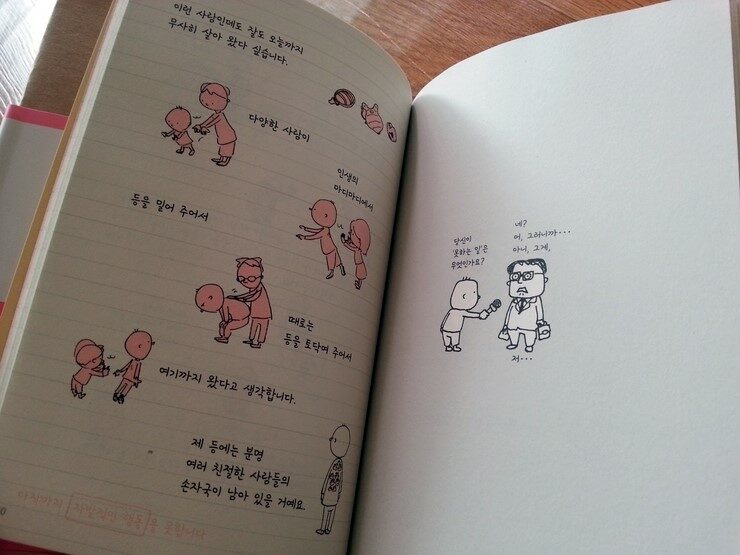 이런 사람인데도 잘도 오늘까지
무사히 살아 왔다 싶습니다.
다양한 사람이
인생의
마디마디에서
등을 밀어 주어서
때로는
등을 토닥여 주어서
여기까지 왔다고 생각합니다.
제 등에는 분명
여러 친절한 사람들의
손자국이 남아 있을 거예요.
아직까지 [자발적인 행동]을 못합니다
당신이
'못하는 일'은
무엇인가요?
네?
어, 그러니까…
아니, 그게,
저…